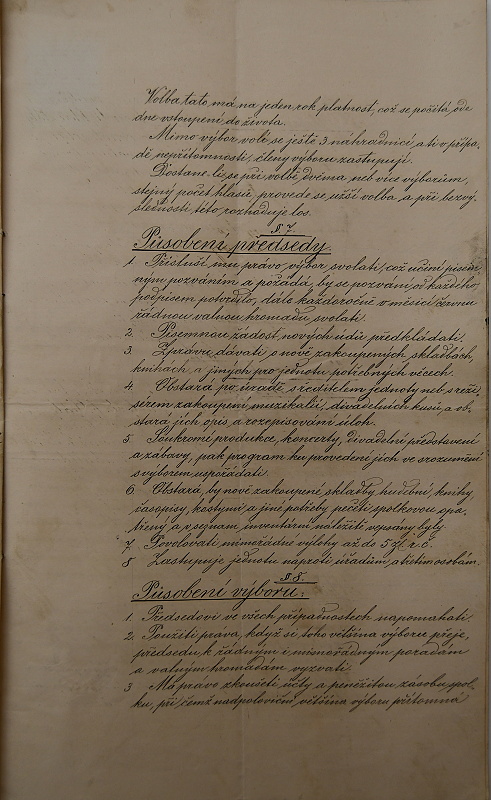 Volba tato má na jeden rok platnost, což se počítá ode
dne vstoupení do života.
Mimo výbor volí se ještě 3 náhradníci, a ti v přípa-
dě nepřítomnosti, členy výboru zastupují.
Dostane-li se při volbě dvěma neb více výborům,
stejný počet hlasů, provede se užší volba, a při bezvý-
slednosti této, rozhoduje los.
§ 7.
Působení předsedy.
1. Přísluší mu právo, výbor svolati, což učiní písem-
ným pozváním a požádá, by se pozvaní od každého
podpisem potvrdilo, dále každoročně v měsíci červnu
řádnou valnou hromadu, svolati.
2. Písemnou žádost, nových údů předkládati.
3. Zprávu, dávati o nově zakoupených, skladbách,
knihách, a jiných pro jednotu potřebných věcech.
4. Obstará po úradě s ředitelem jednoty neb s reži-
sérem zakoupení muzikalií, divadelních kusů, a ob-
stará jich opis a rozepisování úloh.
5. Soukromí produkce, koncerty, divadelní představení
a zábavy, pak program ku provedení jich ve srozumění
s výborem uspořádati.
6. Obstará, by nově zakoupené, skladby hudební, knihy,
časopisy, kostymy a jiné potřeby pečetí spolkovou opa-
třeny a v seznam inventární náležitě vepsány byly
7. Povolovati mimořádné výlohy až do 5 zl. r. č.
8. Zastupuje jednotu naproti úřadům, a třetím osobám.
§ 8.
Působení výboru:
1. Předsedovi ve všech případnostech napomáhati.
2. Použíti práva, když si toho většina výboru přeje,
předsedu, k řádným i mimořádným poradám
a valným hromadám vyzvati.
3. Má právo zkoušeti, účty a peněžitou zásobu spol-
ku, při čemž nadpoloviční většina výboru přítomna